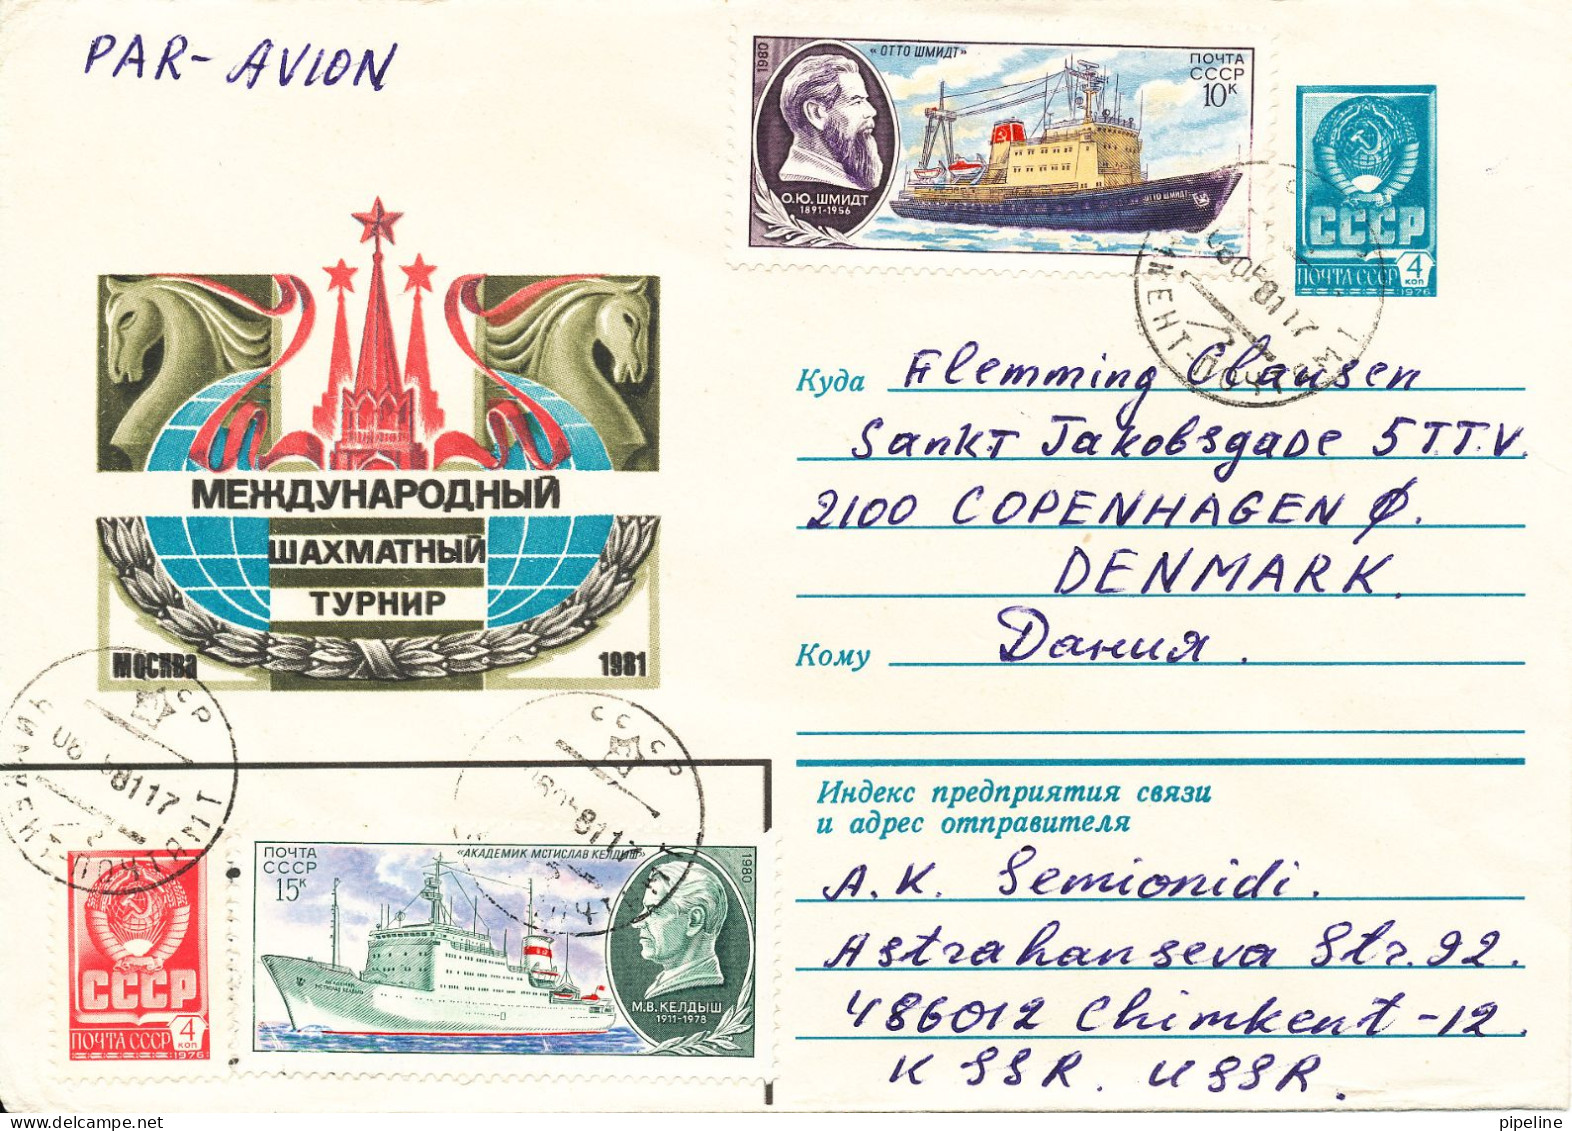 PAR-AVION
1980
«ОТТО ШМИДТ»
ПОЧТА
СССР
10К
О.Ю. ШМИДТ
1891-1956
ОТТО ШМИДТ
СССР
ПОЧТА СССР 4 КОП
1976
МЕЖДУНАРОДНЫЙ
ШАХМАТНЫЙ
ТУРНИР
МОСКВА 1981
Куда Flemming Clausen
Sankt Jakobsgade 5TT.V.
2100 COPENHAGEN Ø.
DENMARK.
Кому Дания.
Индекс предприятия связи
и адрес отправителя
A.K. Semionidi.
Astrahanseva Str. 92.
486012 Chimkent-12.
K SSR. USSR.
СССР
81 17
ЧИМКЕНТ ПОЧТАМТ
СССР
ПОЧТА СССР 4 КОП
1976
ПОЧТА
СССР
15К
«АКАДЕМИК МСТИСЛАВ КЕЛДЫШ»
1980
М.В. КЕЛДЫШ
1911-1978
pipeline